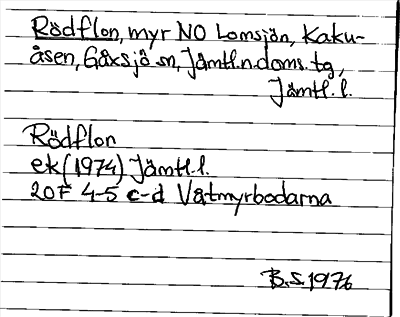 Rödflon, myr NO Lomsjön, Kaku-
åsen, Gåxsjö sn, Jämtl.n.doms.tg,
Jämtl. l.
Rödflon
ek (1974) Jämtl.l.
20F 4-5 c-d Våtmyrbodarna
B.S. 1976